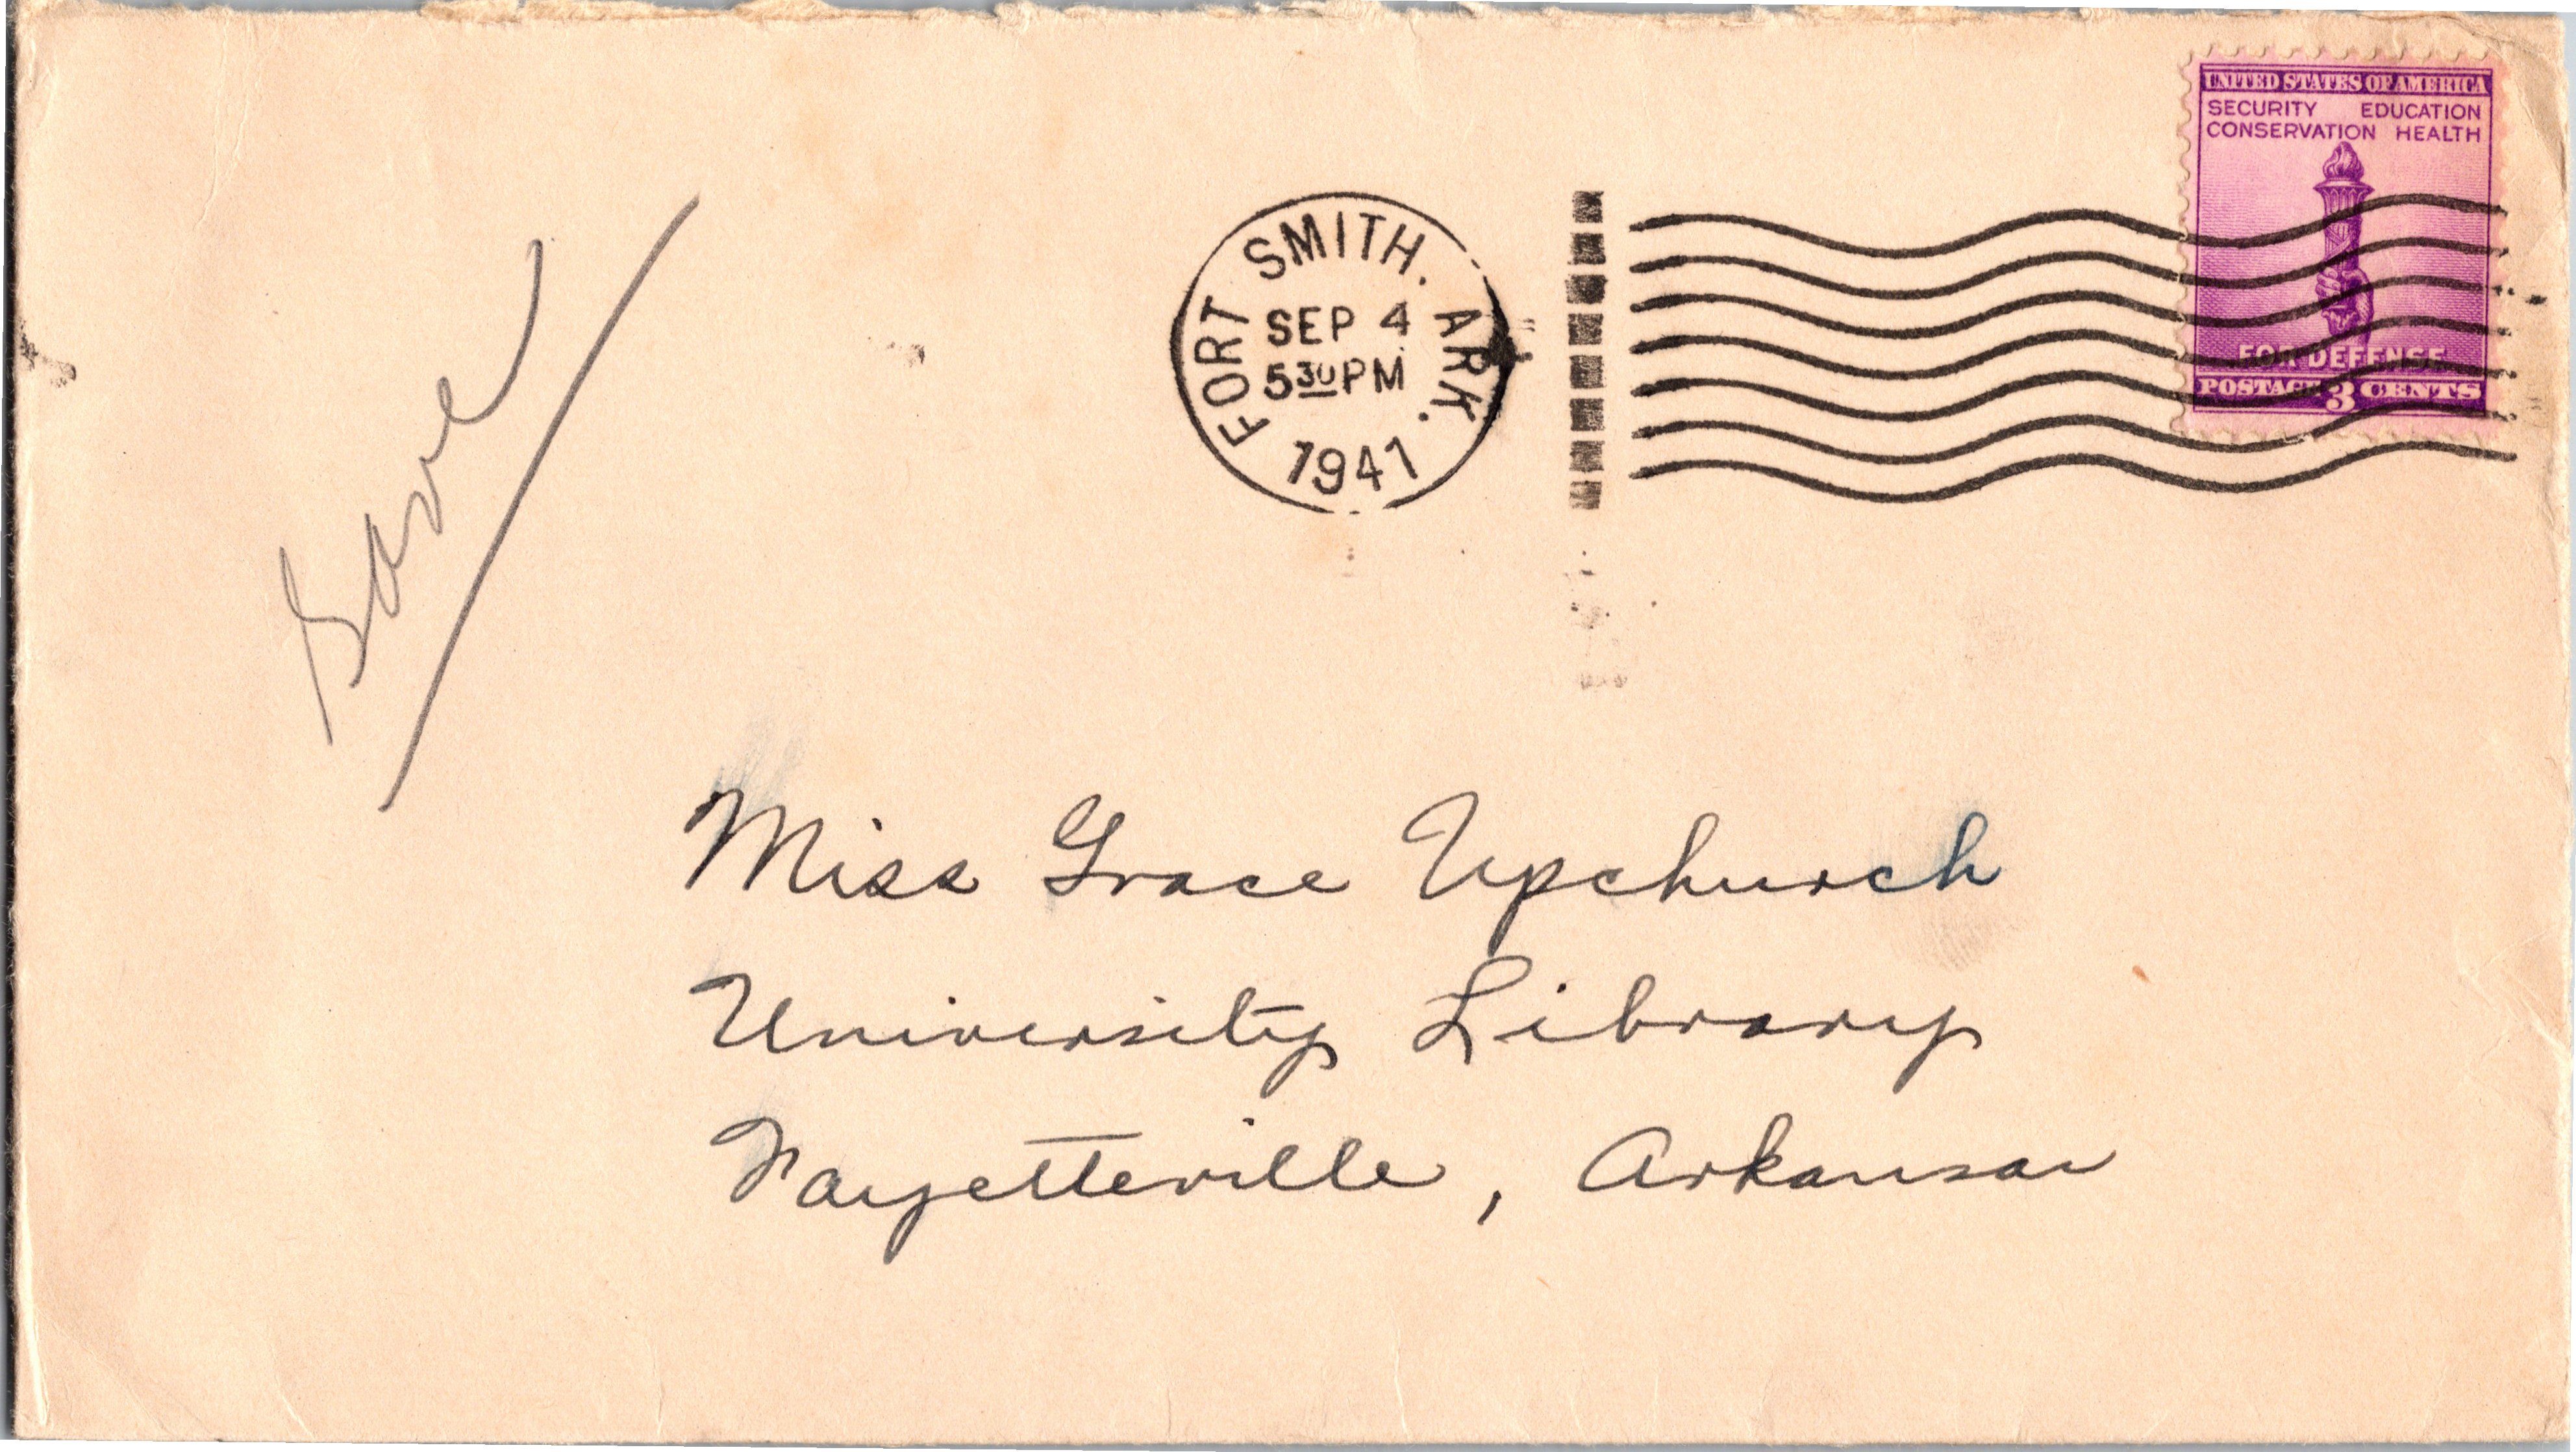 UNITED STATES OF AMERICA
SECURITY EDUCATION
CONSERVATION HEALTH
FOR DEFENSE
POSTAGE 3 CENTS
FORT SMITH. ARK.
SEP 4
5 30 PM
1941
Save
Miss Grace Upchurch
University Library
Fayetteville, Arkansas